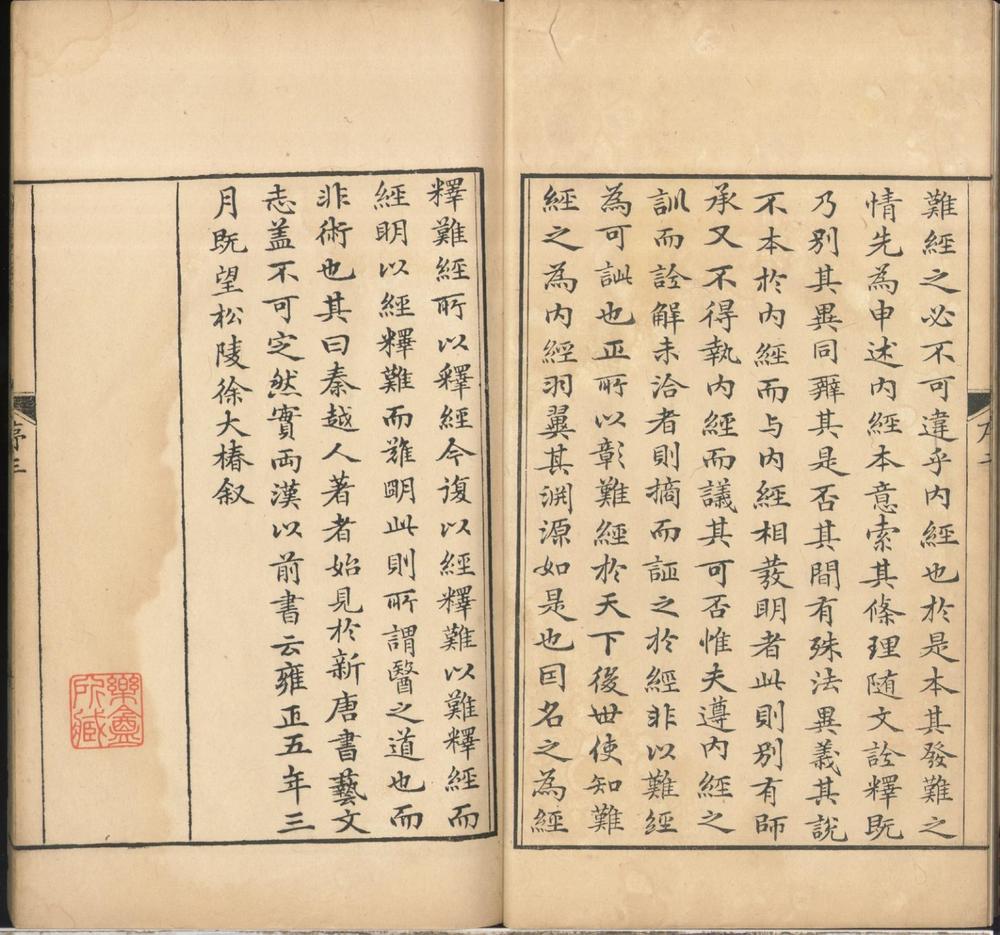 難經之必不可違乎内經也於是本其發難之
情先為申述内經本意索其條理随文詮釋既
乃别其異同辨其是否其間有殊法異義其說
不本於内經而与内經相發明者此則别有師
承又不得執内經而議其可否惟夫遵内經之
訓而詮解未洽者則摘而証之於經非以難經
為可訿也正所以彰難經於天下後世使知難
經之為内經羽翼其渊源如是也因名之為經
釋難經所以釋經今復以經釋難以難釋經而
經明以經釋難而難明此則所謂醫之道也而
非術也其曰秦越人著者始見於新唐書藝文
志盖不可定然實两漢以前書云雍正五年三
月既望松陵徐大椿叙
序三
樂盦
所藏